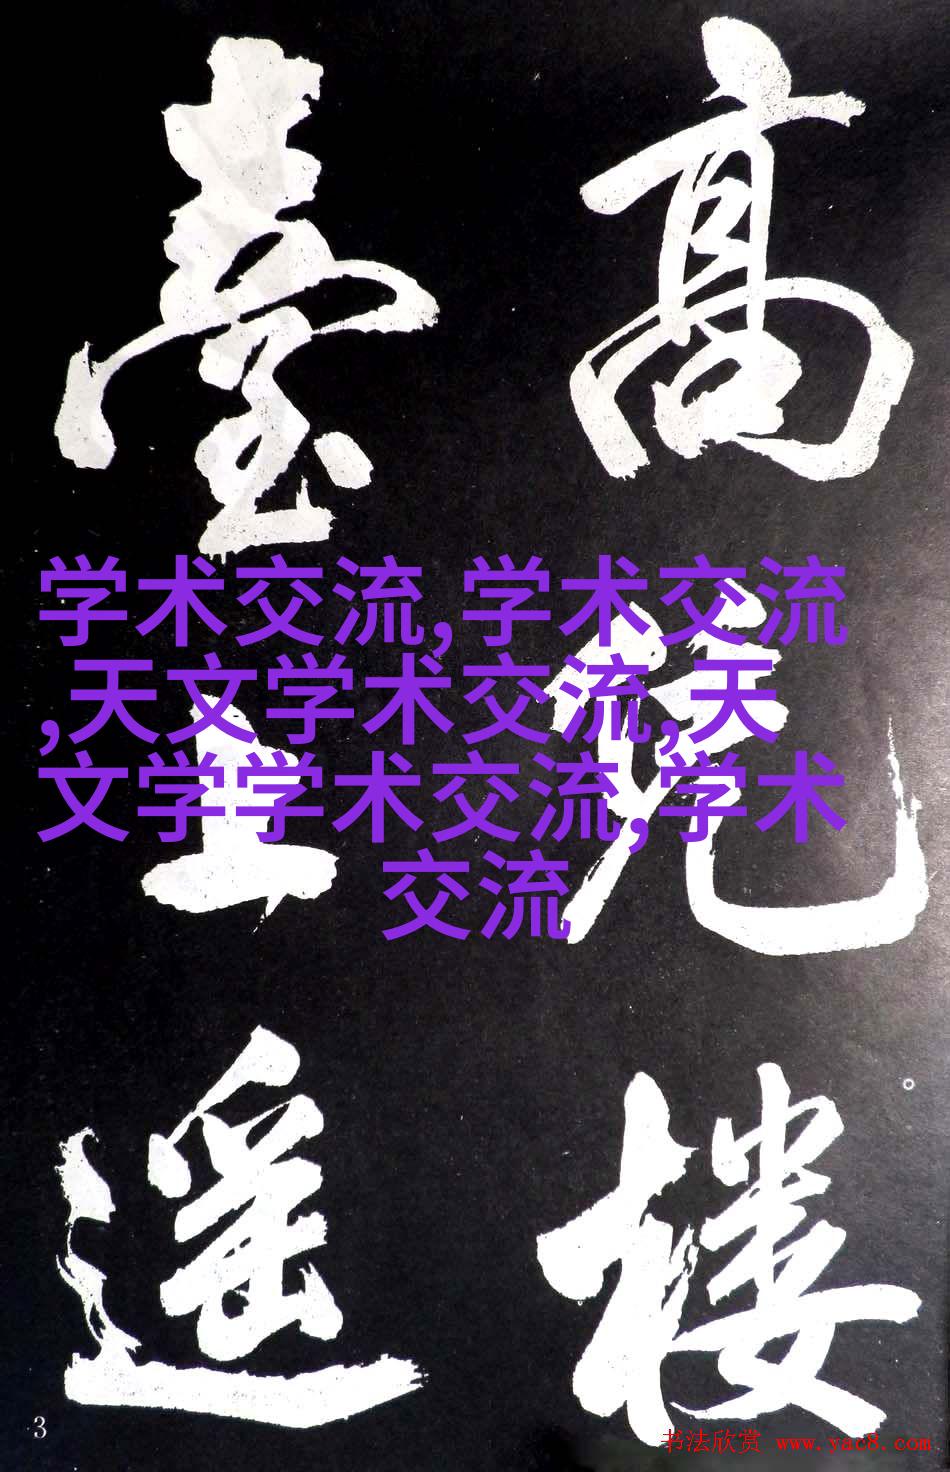 高
楼
臺上遥
学术交流,学术交流
,天文学术交流,天
文学学术交流,学术
交流
3
书法欣赏 www.yac8.com